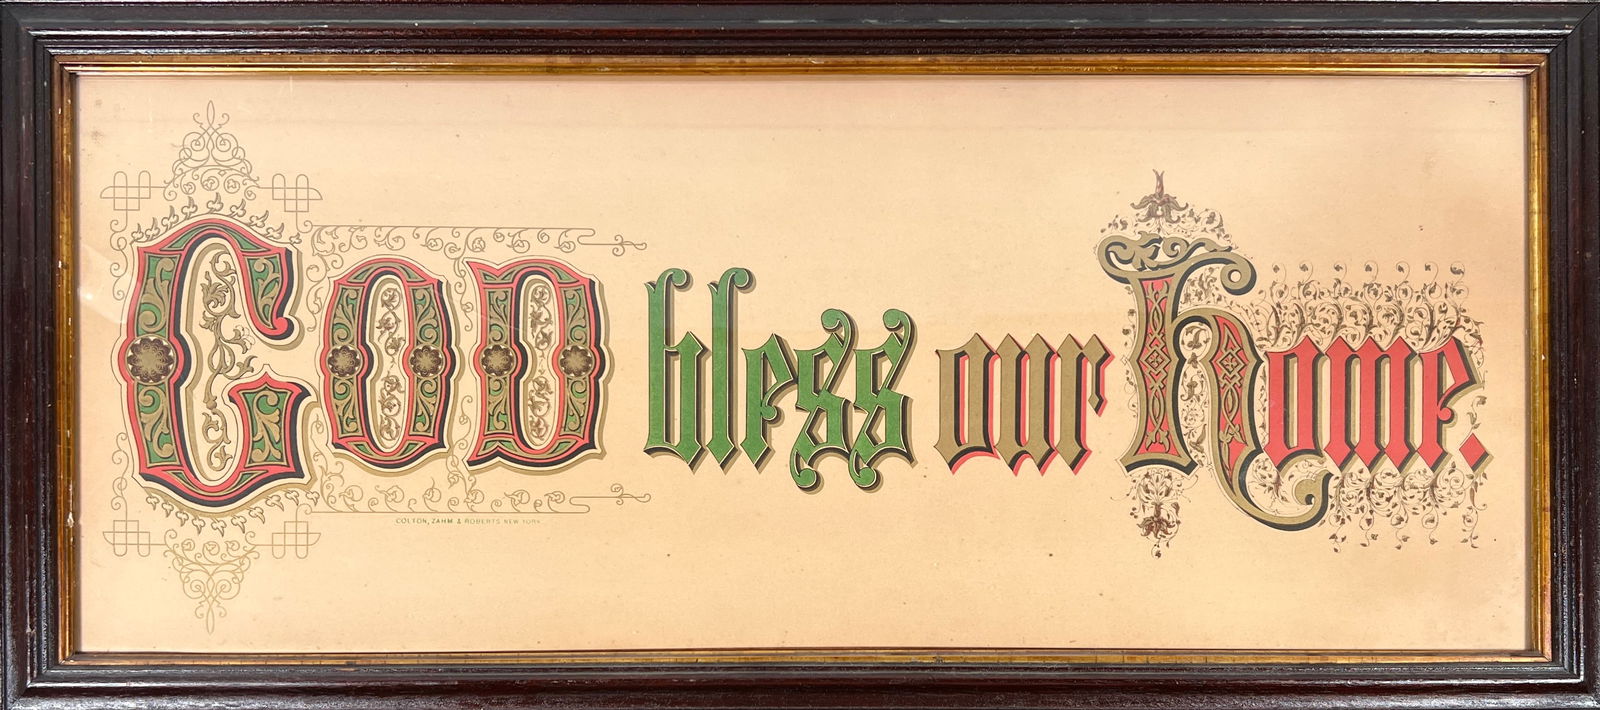 GOD bless our Home.
COLTON, ZAHM & ROBERTS NEW YORK